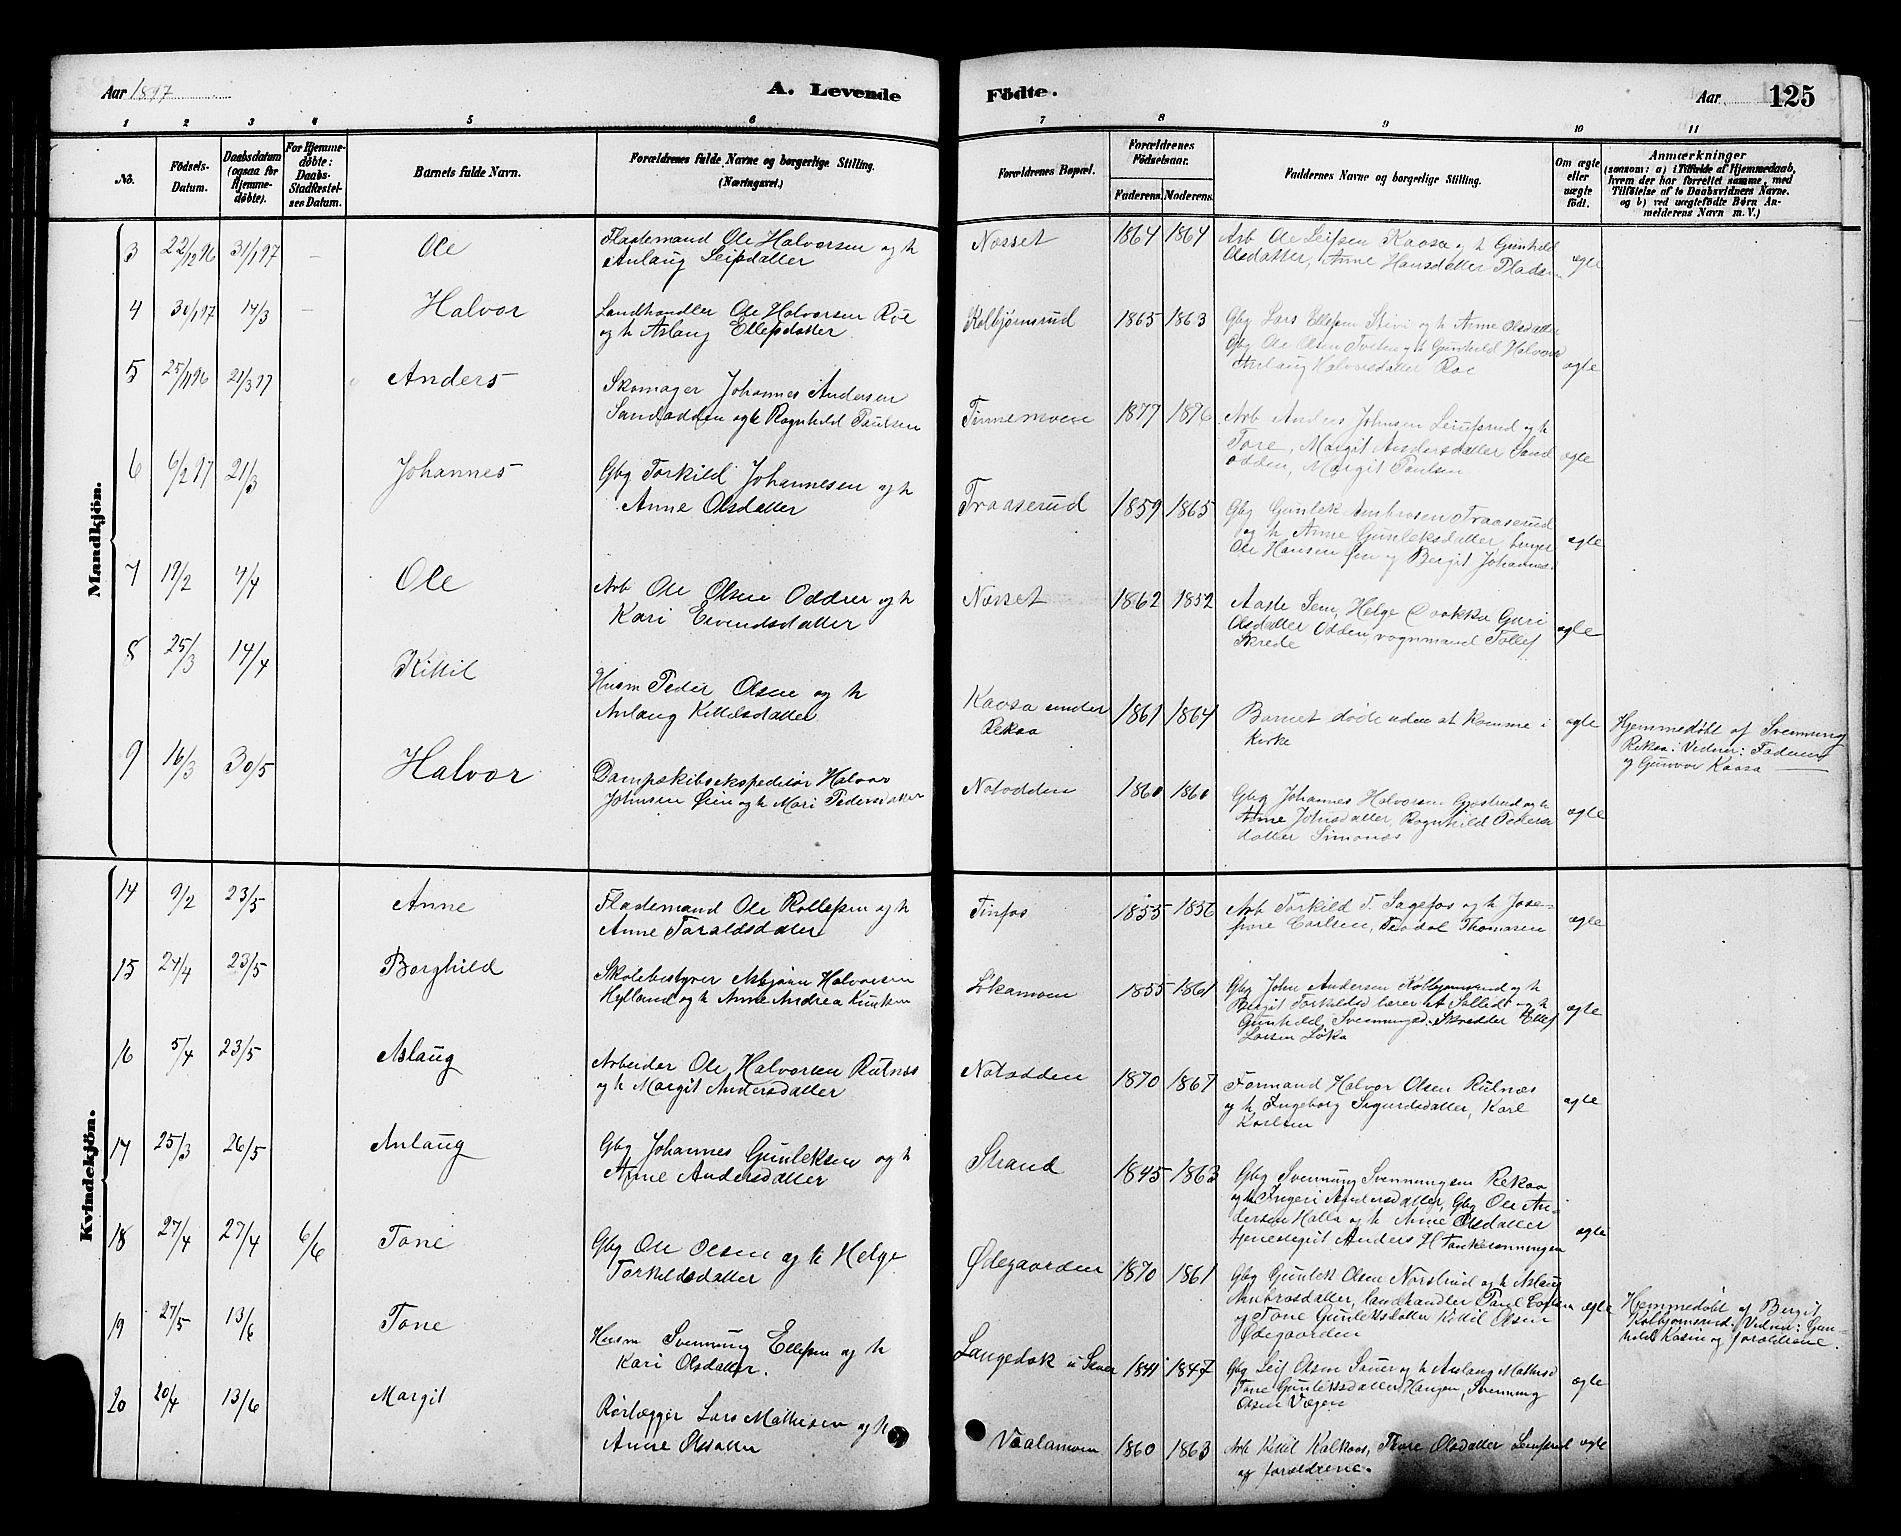 Aar 1897
A. Levende
Födte.
Aar
125
1 2 3 4 5 6 7 8 9 10 11
No.
Födsels-
Datum.
Daabsdatum
(ogsaa for
Hjemme-
döbte).
For Hjemme-
döbte:
Daabs-
Stadfæstel-
ses Datum.
Barnets fulde Navn.
Forældrenes fulde Navne og borgerlige Stilling.
(Næringsvei.)
Forældrenes Bopæl.
Forældrenes
Födselsaar.
Faderens. Moderens.
Faddernes Navne og borgerlige Stilling.
Om ægte
eller
uægte
födt.
Anmærkninger
(saasom: a) i Tilfælde af Hjemmedaab,
hvem der har forrettet samme, med
Tilföielse af to Daabsvidners Navne.
og b) ved uægtefödte Börn An-
melderens Navn m. V.)
Mandkjön.
3 22/12 96 31/1 97 — Ole
Flaatemand Ole Halvorsen og h
Anlaug Leifsdatter
Næsset 1864 1864
Arb Ole Leifsen Kaasa og h Gunhild
Olsdatter, Anne Hansdatter
ægte
4 30/1 97 14/3 — Halvor
Landhandler Ole Halvorsen Roe
og h Aslaug Ellefsdatter
Kolbjørnsrud 1865 1863
Gbg Lars Ellefsen Stivi og h Anne Olsdatter
Gbg Ole Olsen Tveten og h Gunhild Halvors
Anlaug Halvorsdatter Roe
ægte
5 25/11 96 21/3 97 Anders
Skomager Johannes Andersen
Sandodden og h Ragnhild Paulsen
Tinnemoen 1877 1876
Arb Anders Johnsen Leirfsrud og h
Tore, Margit Andersdatter Sand
odden, Margit Paulsen
ægte
6 6/2 97 21/3 Johannes
Gbg Torkild Johannesen og h
Anne Olsdatter
Traaserud 1859 1865
Gbg Gunlek Ambrosen Traaserud
og h Anne Gunleksdatter
Ole Hansen Øen og Bergit Johannes.
ægte
7 19/2 4/4 Ole
Arb Ole Olsen Oddern og h
Kari Eivendsdatter
Næsset 1862 1852
Aaste Sem, Helge Guri
Olsdatter Odden, vognmand Tollef
Skrede
ægte
8 25/3 14/4 Kittil
Husm Peder Olsen og h
Anlaug Kittilsdatter
Kaasa under
Rekaa
1861 1864
Barnet døde uden at komme i
Kirke
ægte
Hjemmedøbt af Svennung
Rekaa: Vidner: Faderen
og Gunvor Kaasa
9 16/3 30/5 Halvor
Dampskibsekspeditør Halvor
Johnsen Øien og h Mari Pedersdatter
Notodden 1860 1860
Gbg Johannes Halvorsen og h
Anne Johnsdatter, Ragnhild Peders
datter Simonæs
ægte
Kvindekjön.
14 9/2 23/5 Anne
Flaatemand Ole Rollefsen og h
Anne Taraldsdatter
Tinfos 1855 1856
Arb Torkild T. Sagefos og h Jose-
fine Carlsen, Teodol Thomasen
ægte
15 24/4 23/5 Borghild
Skolebestyrer Asbjørn Halvorsen
Hylland og h Anne Andrea Knutsen
Løkamoen 1855 1861
Gbg John Andersen Kolbjørnsrud og h
Bergit Torkildsd lærer A Sollid og h
Gunhild Svenningsd. Skredder Ellef
Larsen Løka
ægte
16 5/4 23/5 Aslaug
Arbeider Ole Halvorsen Rutnæs
og h Margit Andersdatter
Notodden 1870 1867
Formand Halvor Olsen Rutnæs
og h, Ingeborg Sigurdsdatter, Karl
Karlsen
ægte
17 25/3 26/5 Anlaug
Gbg Johannes Gunleksen og h
Anne Andersdatter
Strand 1845 1863
Gbg Svennung Svennungsen Rekaa
og h Ingeri Andersdatter, Gbg Ole An-
dersen Halla og h Anne Olsdatter
tjenestegut Anders H
ægte
18 27/4 27/4 6/6 Tone
Gbg Ole Olsen og h Helge
Torkildsdatter
Ødegaarden 1870 1861
Gbg Gunlek Olsen Norstrud og h Aslaug
Ambrosdatter, landhandler
og Tone Gunleksdatter Kittil Olsen
Ødegaarden
ægte
Hjemmedøbt af Bergit
Kolbjørnsrud: Vidner: Gun-
hild Kasin og forældrene.
19 27/5 13/6 Tone
Husm Svennung Ellefsen og h
Kari Olsdatter.
Langedok u 1841 1847
Gbg Leif Olsen Sauer og h Anlaug
Tone Gunleksdatter Haugen, Svennung
Olsen
ægte
20 20/4 13/6 Margit
Rørlægger Lars Mathisen og h
Anne Olsdatter
Vaalamoen 1860 1863
Arb Kittil Kalkaas, Thore Olsdatter
og forældrene.
ægte